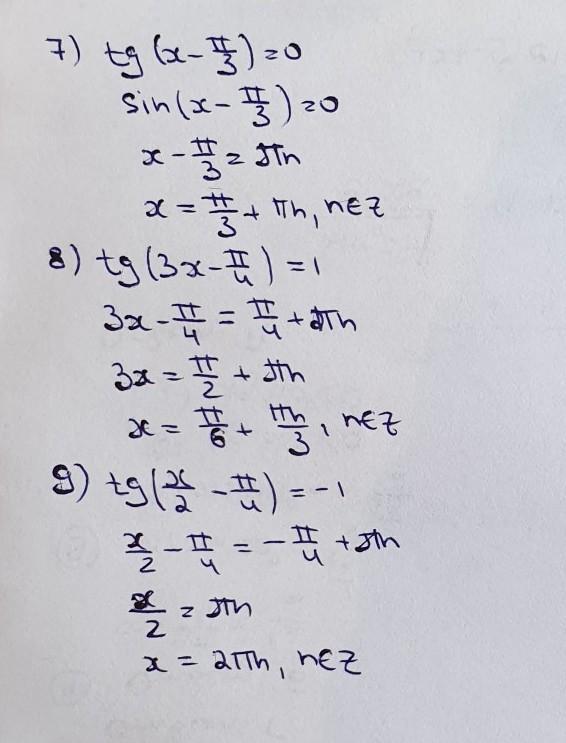 7) tg(x-π/3)=0
sin(x-π/3)=0
x-π/3=πn
x=π/3+πn, n∈Z
8) tg(3x-π/4)=1
3x-π/4=π/4+πn
3x=π/2+πn
x=π/6+πn/3, n∈Z
9) tg(x/2-π/4)=-1
x/2-π/4=-π/4+πn
x/2=πn
x=2πn, n∈Z